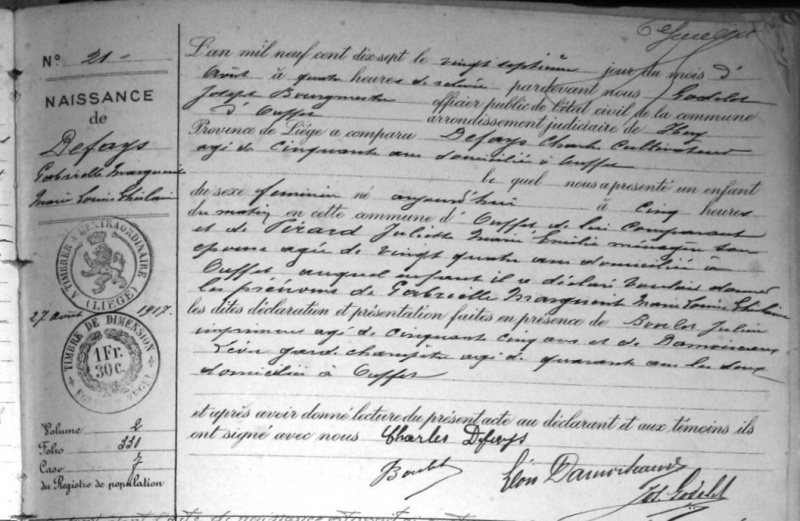 N° 21
NAISSANCE
de
Defays
Gabrielle Marguerite
Marie Louise Ghislaine
A TIMBRER A L'EXTRAORDINAIRE
(LIÈGE)
27 août 1917.
TIMBRE DE DIMENSION
1 Fr.
30 C.
Volume 2
Folio 331
Case 7
du Registre de population
L'an mil neuf cent dix sept le vingt septième jour du mois d'
Août à quatre heures de relevée pardevant nous Godelet
Joseph Bourgmestre officier public de l'état civil de la commune
d'Ouffet arrondissement judiciaire de Huy
Province de Liége a comparu Defays Charles Cultivateur
agé de cinquante ans domicilié à Ouffet
le quel nous a présenté un enfant
du sexe féminin né aujourd'hui à cinq heures
du matin en cette commune d'Ouffet de lui comparant
et de Pirard Juliette Marie Emilie ménagère son
épouse agée de vingt quatre ans domiciliée à
Ouffet auquel enfant il a déclaré vouloir donner
les prénoms de Gabrielle Marguerite Marie Louise Ghislaine
les dites déclaration et présentation faites en présence de Boulet Julien
imprimeur agé de cinquante cinq ans et de Damoiseaux
Léon garde champêtre agé de quarante ans les deux
domiciliés à Ouffet
et après avoir donné lecture du présent acte au déclarant et aux témoins ils
ont signé avec nous Charles Defays
Boulet Léon Damoiseaux
Jos. Godelet